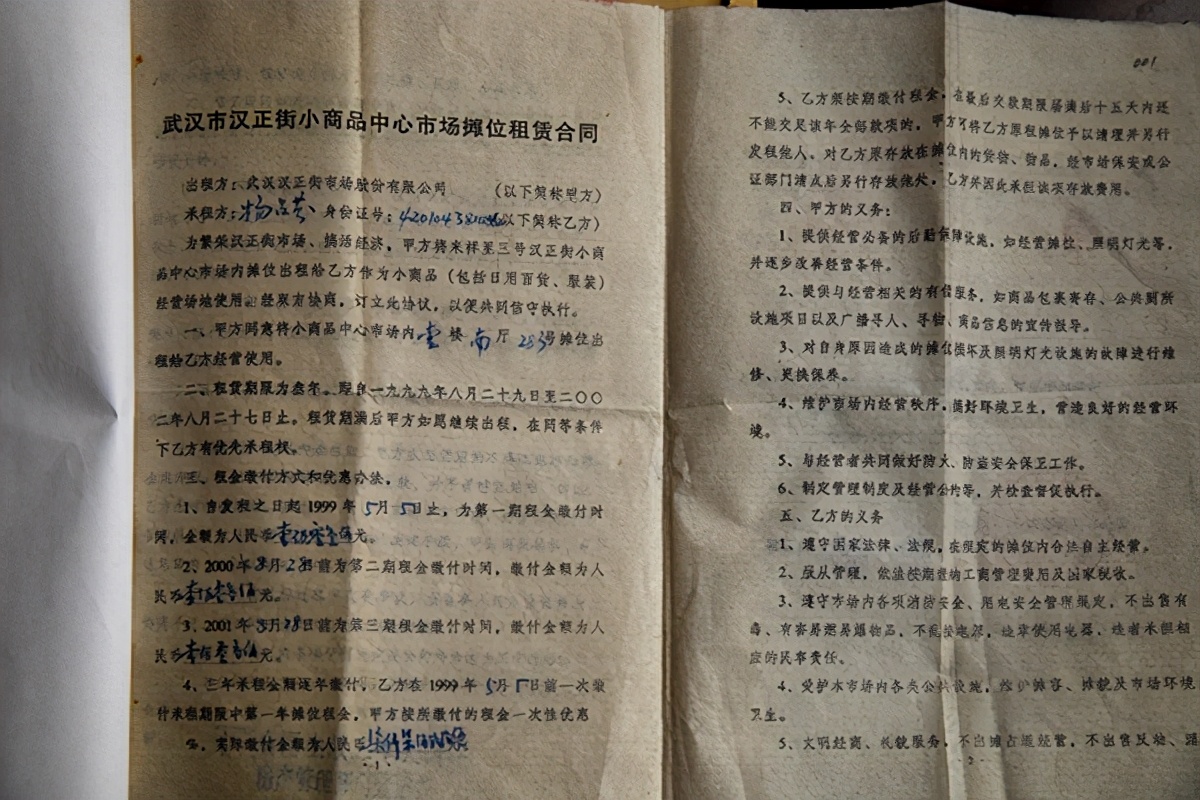 武汉市汉正街小商品中心市场摊位租赁合同
出租方：武汉汉正街市场股份有限公司 （以下简称甲方）
承租方： 身份证号： 以下简称乙方）
为繁荣汉正街市场、搞活经济，甲方将来祥里三号汉正街小商
品中心市场内摊位出租给乙方作为小商品（包括日用百货、服装）
经营场地使用。经双方协商，订立此协议，以便共同信守执行。
一、甲方同意将小商品中心市场内 壹 楼 南 厅 283号摊位出
租给乙方经营使用。
二、租赁期限为叁年。即自一九九九年八月二十九日至二〇〇
二年八月二十七日止。租赁期满后甲方如愿继续出租，在同等条件
下乙方有优先承租权。
三、租金缴付方式和优惠办法。
1、自发租之日起 1999 年 5月 5日止，为第一期租金缴付时
间，金额为人民币 元。
2、2000年8月28日前为第二期租金缴付时间，缴付金额为人
民币 元。
3、2001年8月28日前为第三期租金缴付时间，缴付金额为人
民币 元。
4、三年承租金额逐年缴付，乙方在1999年 5月 5日前一次缴
付承租期限中第一年摊位租金，甲方按所缴付的租金一次性优惠
%，实际缴付金额为人民币
·1·
001
5、乙方须按期缴付租金，在最后交款期限届满后十五天内还
不能交足该年全部款项的，甲方可将乙方原租摊位予以清理并另行
发租他人。对乙方原存放在摊位内的货物、物品，经市场保安或公
证部门清点后另行存放他处，乙方并因此承担该项存放费用。
四、甲方的义务：
1、提供经营必备的后勤保障设施，如经营摊位、照明灯光等，
并逐步改善经营条件。
2、提供与经营相关的有偿服务，如商品包裹寄存、公共厕所
设施项目以及广播寻人、寻物、商品信息的宣传报导。
3、对自身原因造成的摊位损坏及照明灯光设施的故障进行维
修、更换保养。
4、维护市场内经营秩序，搞好环境卫生，营造良好的经营环
境。
5、与经营者共同做好防火、防盗安全保卫工作。
6、制定管理制度及经营公约等，并检查督促执行。
五、乙方的义务
1、遵守国家法律、法规，在规定的摊位内合法自主经营。
2、服从管理，依法按期缴纳工商管理费用及国家税收。
3、遵守市场内各项消防安全、用电安全管理规定，不出售有
毒、有害易燃易爆物品，不能接电源，违章使用电器，违者承担相
应的民事责任。
4、爱护本市场内各类公共设施，维护摊容、摊貌及市场环境
卫生。
5、文明经商、礼貌服务，不出摊占道经营，不出售
·2·